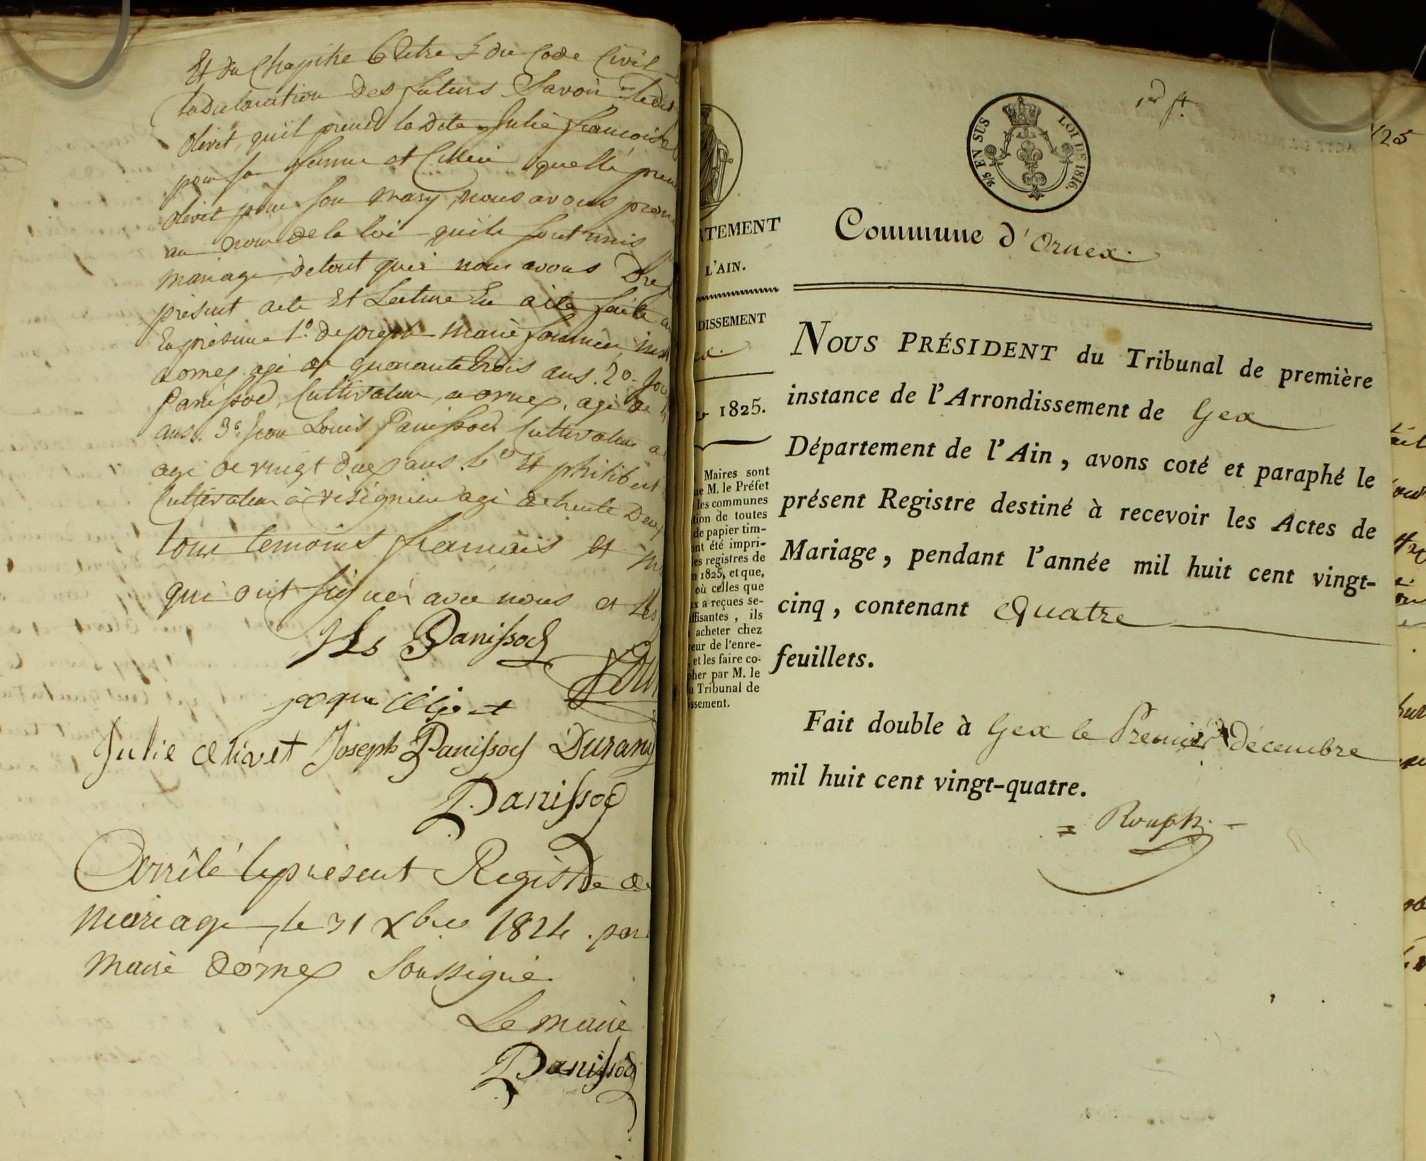 Et du Chapitre 6 titre 5 du Code Civil
la Declaration des futurs Savoir ledit
olivet qu'il prend la dite Julie françoise
pour sa femme et Celleci quelle prend
olivet pour son mary nous avons pron
au nom de la loi quils sont unis
mariage, de tout quoi nous avons Dre
présent acte Et Lecture En a été faite
En présence 1º de joseph marie
dornex agé de quarante trois ans. 2º.
Panissod, Cultivateur a ornex, agé de
ans. 3º Jean Louis Panissod Cultivateur a
agé de vingt deux ans. Et philibert
Cultivateur à agé de trente Deux
tous temoins francais et
qui ont signés avec nous et les
Panissod
jacque olivet
Julie olivet Joseph Panissod Durand
Panissod
Arrêté le présent Registre de
mariage, le 31 Xbre 1824. par
maire dornex Soussigné.
Le maire
Panissod
1er ft.
25
5/5 EN SUS LOI DE 1816.
ATEMENT
L'AIN.
DISSEMENT
ex.
1825.
Maires sont
ue M. le Préfet
les communes
tion de toutes
de papier tim-
ont été impri-
es registres de
n 1825, et que,
où celles que
s a reçues se-
ffisantes, ils
acheter chez
eur de l'enre-
et les faire co-
pher par M. le
u Tribunal de
ssement.
Commune d'Ornex.
NOUS PRÉSIDENT du Tribunal de première
instance de l'Arrondissement de Gex
Département de l'Ain, avons coté et paraphé le
présent Registre destiné à recevoir les Actes de
Mariage, pendant l'année mil huit cent vingt-
cinq, contenant Quatre
feuillets.
Fait double à Gex le Premier décembre
mil huit cent vingt-quatre.
= Rouph. =